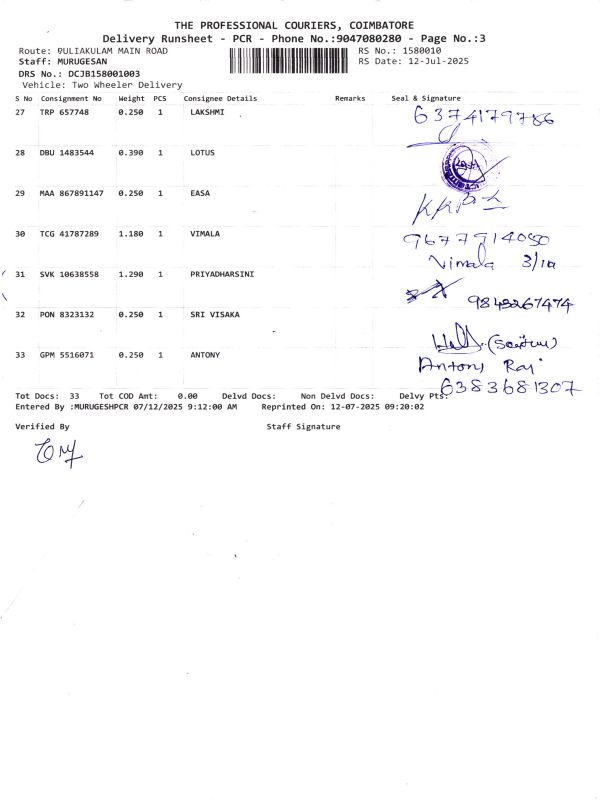 THE PROFESSIONAL COURIERS, COIMBATORE
Delivery Runsheet - PCR - Phone No.:9047080280 - Page No.:3
Route: PULIAKULAM MAIN ROAD RS No.: 1580010
Staff: MURUGESAN RS Date: 12-Jul-2025
DRS No.: DCJB158001003
Vehicle: Two Wheeler Delivery
S No Consignment No Weight PCS Consignee Details Remarks Seal & Signature
27 TRP 657748 0.250 1 LAKSHMI 6374179786
28 DBU 1483544 0.390 1 LOTUS
29 MAA 867891147 0.250 1 EASA
30 TCG 41787289 1.180 1 VIMALA 9677914050
Vimala 3/10
31 SVK 10638558 1.290 1 PRIYADHARSINI
9843267474
32 PON 8323132 0.250 1 SRI VISAKA
33 GPM 5516071 0.250 1 ANTONY Antony Raj
6383681307
Tot Docs: 33 Tot COD Amt: 0.00 Delvd Docs: Non Delvd Docs: Delvy Pts:
Entered By :MURUGESHPCR 07/12/2025 9:12:00 AM Reprinted On: 12-07-2025 09:20:02
Verified By Staff Signature